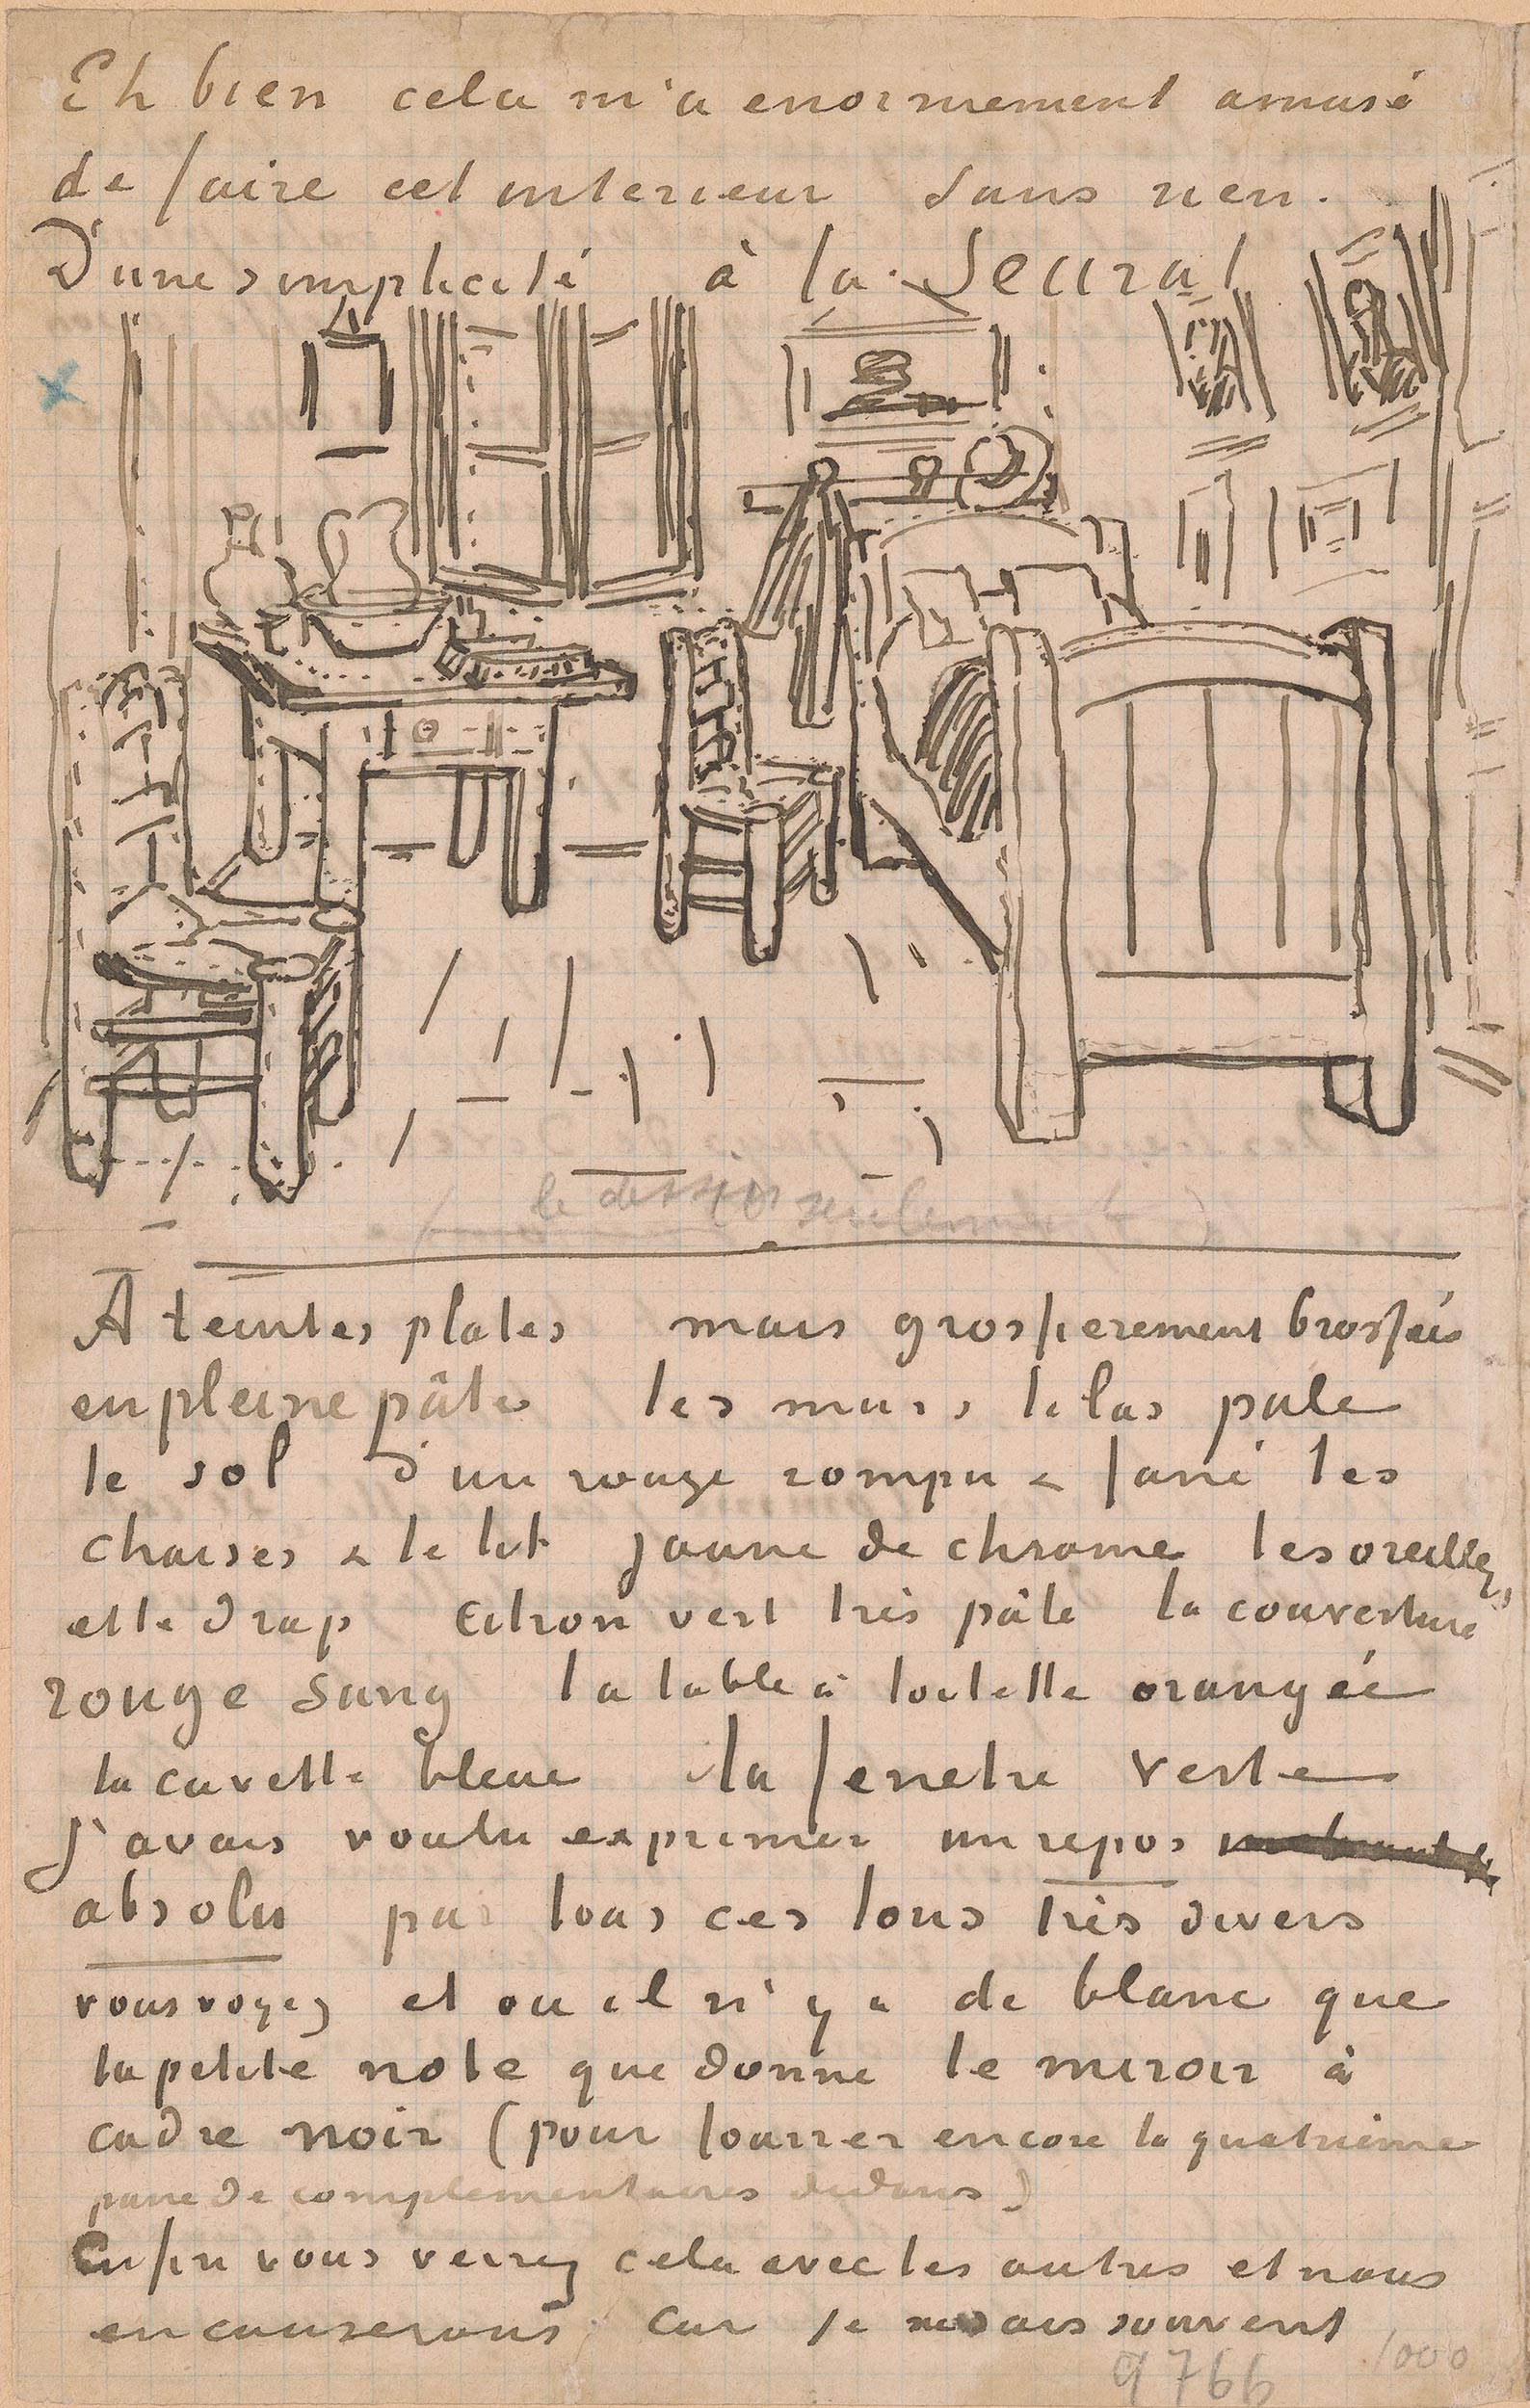 Eh bien cela m'a enormement amusé
de faire cet interieur sans rien.
D'une simplicité à la Seurat
(le dessin seulement)
A teintes plates mais grossierement brossées
en pleine pâte les murs lilas pale
le sol d'un rouge rompu & fané les
chaises & le lit jaune de chrome les oreillers
et le drap citron vert très pâle la couverture
rouge sang la table à toilette orangée
la cuvette bleue la fenetre verte
J'avais voulu exprimer un repos
absolu par tous ces tons très divers
vous voyez et ou il n'y a de blanc que
la petite note que donne le miroir à
cadre noir (pour fourrer encore la quatrième
paire de complementaires dedans)
Enfin vous verrez cela avec les autres et nous
en causerons car je ne sais souvent
9766 1000